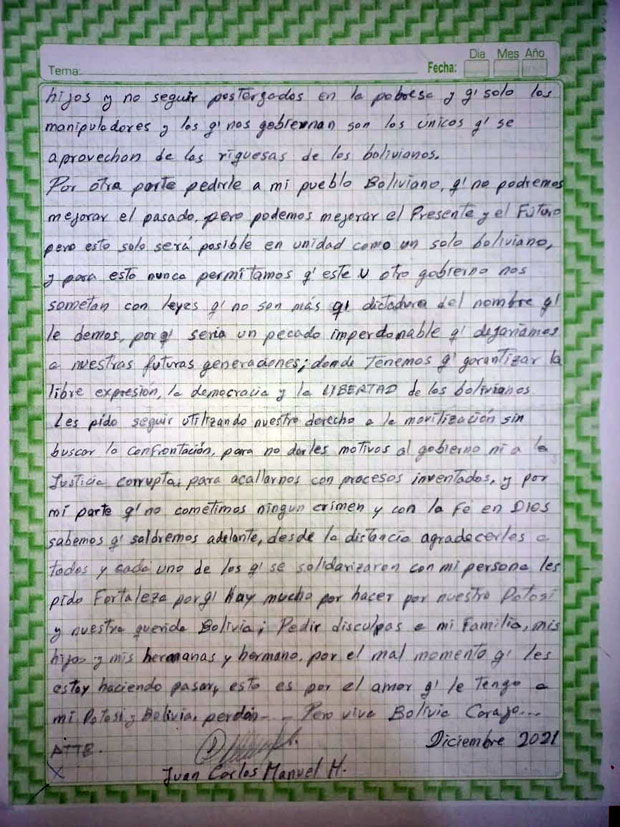 Dia Mes Año
Tema: Fecha:
hijos y no seguir postergados en la pobresa y q' solo los
manipuladores y los q' nos gobiernan son los unicos q' se
aprovechan de las riquesas de los bolivianos.
Por otra parte pedirle a mi pueblo Boliviano, q' no podremos
mejorar el pasado, pero podemos mejorar el Presente y el Futuro
pero esto solo será posible en unidad como un solo boliviano,
y para esto nunca permitamos q' este U otro gobierno nos
sometan con leyes q' no son más q' dictadura del nombre q'
le demos, porq' seria un pecado imperdonable q' dejariamos
a nuestras futuras generaciones; donde Tenemos q' garantizar la
libre expresión, la democracia y la LIBERTAD de los bolivianos
Les pido seguir utilizando nuestro derecho a la movilización sin
buscar la confrontación, para no darles motivos al gobierno ni a la
Justicia corrupta, para acallarnos con procesos inventados, y por
mi parte q' no cometimos ningun crimen y con la Fé en DIOS
sabemos q' saldremos adelante, desde la distancia agradecerles a
todos y cada uno de los q' se solidarizaron con mi persona les
pido Fortaleza porq' Hay mucho por hacer por nuestro Potosi
y nuestra querida Bolivia; Pedir disculpas a mi Familia, mis
hijos y mis hermanas y hermano, por el mal momento q' les
estoy haciendo pasar, esto es por el amor q' le Tengo a
mi Potosi y Bolivia perdón - - Pero viva Bolivia Carajo...
ATTE. Diciembre 2021
Juan Carlos Manuel H.